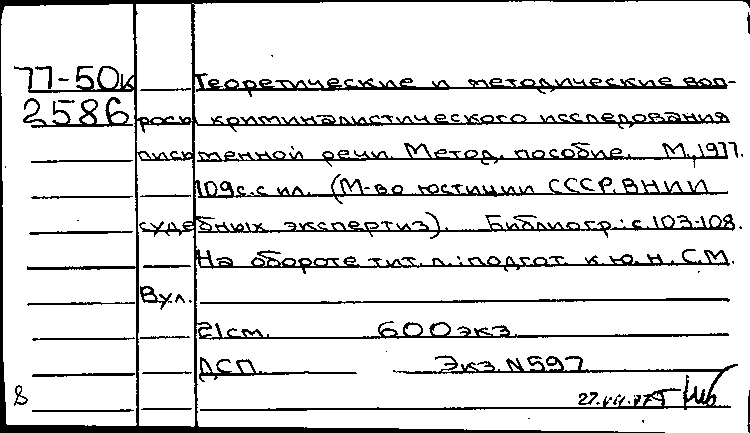 77-50к Теоретические и методические воп-
2586 росы криминалистического исследования
письменной речи. Метод. пособие. М., 1977.
109с. с ил. (М-во юстиции СССР, ВНИИ
судебных экспертиз). Библиогр.: с. 103-108.
На обороте тит. л.: подгот. к.ю.н. С.М.
Вул.
21см. 600экз
ДСП. Экз. N597
8